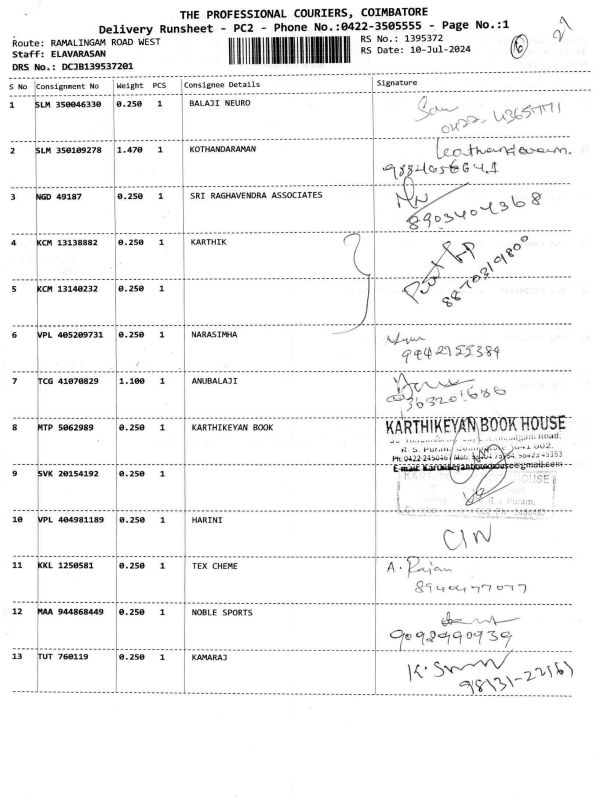 THE PROFESSIONAL COURIERS, COIMBATORE
Delivery Runsheet - PC2 - Phone No.:0422-3505555 - Page No.:1
Route: RAMALINGAM ROAD WEST
Staff: ELAVARASAN
DRS No.: DCJB139537201
RS No.: 1395372
RS Date: 10-Jul-2024
6
27
S No Consignment No Weight PCS Consignee Details Signature
1 SLM 350046330 0.250 1 BALAJI NEURO
2 SLM 350109278 1.470 1 KOTHANDARAMAN
3 NGD 49187 0.250 1 SRI RAGHAVENDRA ASSOCIATES
8903404368
4 KCM 13138882 0.250 1 KARTHIK
5 KCM 13140232 0.250 1
6 VPL 405209731 0.250 1 NARASIMHA
9442755384
7 TCG 41070829 1.100 1 ANUBALAJI
8 MTP 5062989 0.250 1 KARTHIKEYAN BOOK
KARTHIKEYAN BOOK HOUSE
E-mail: Karthikeyanbookhouse@gmail.com
9 SVK 20154192 0.250 1
10 VPL 404981189 0.250 1 HARINI
11 KKL 1250581 0.250 1 TEX CHEME
A. Rajan
8940477077
12 MAA 944868449 0.250 1 NOBLE SPORTS
9092990939
13 TUT 760119 0.250 1 KAMARAJ